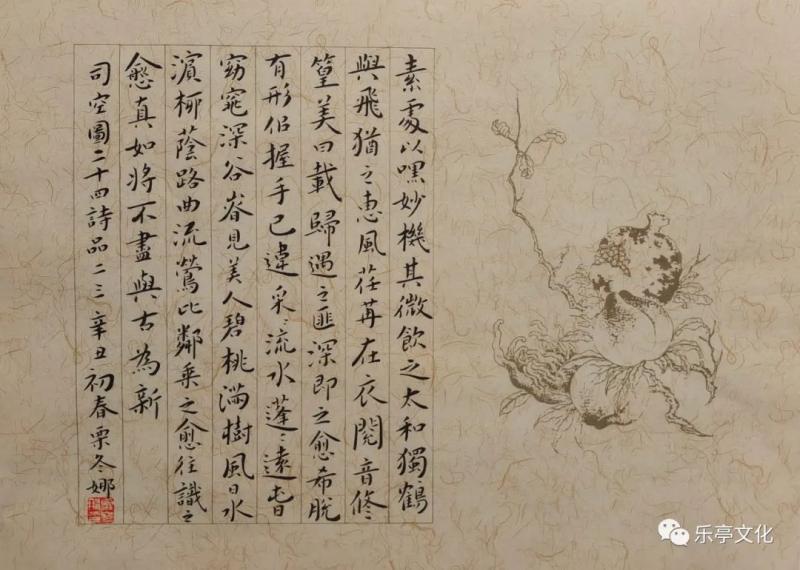 素處以嘿妙機其微飲之太和獨鶴
與飛猶之惠風荏苒在衣閱音修
篁美曰載歸遇之匪深即之愈希脫
有形佀握手已違采〻流水蓬〻遠旾
窈窕深谷旹見美人碧桃滿樹風日水
濱柳蔭路曲流鶯比鄰乘之愈往識之
愈真如將不盡與古為新
司空圖二十四詩品二三辛丑初春栗冬娜
乐亭文化